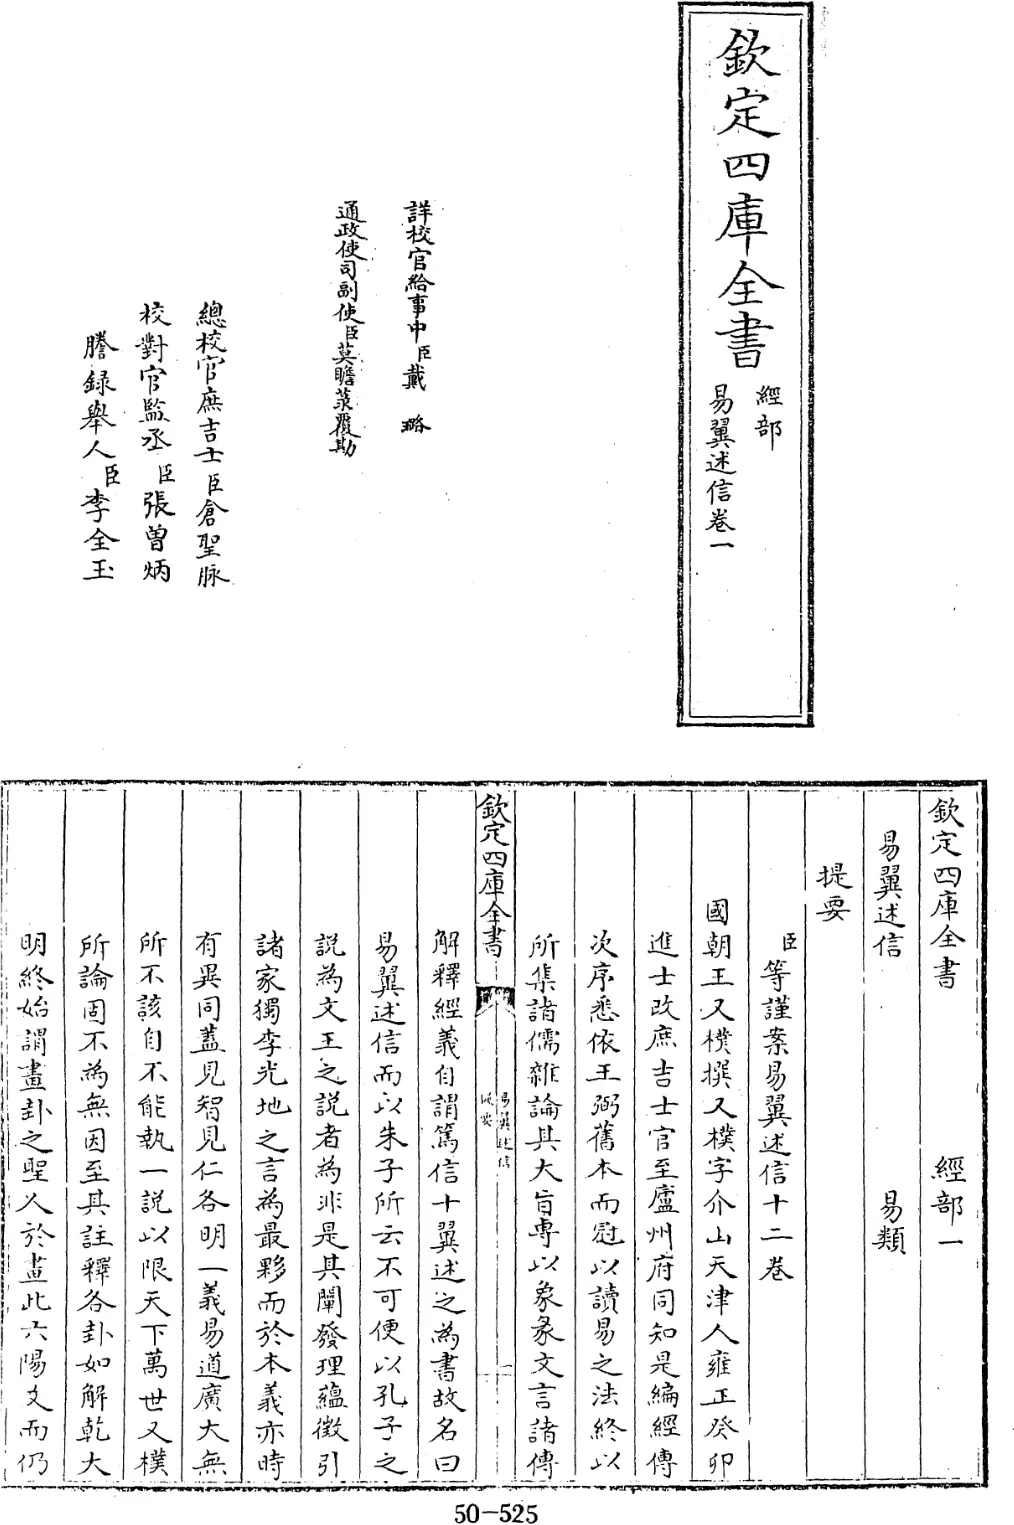 欽定四庫全書
經部
易翼述信卷一
詳校官給事中臣戴璐
通政使司副使臣莫瞻菉覆勘
總校官庶吉士臣倉聖脉
校對官監丞臣張曾炳
謄錄舉人臣李全玉
欽定四庫全書 經部一
易翼述信 易類
提要
臣等謹案易翼述信十二卷
國朝王又樸撰又樸字介山天津人雍正癸卯
進士改庶吉士官至廬州府同知是編經傳
次序悉依王弼舊本而冠以讀易之法終以
所集諸儒雜論其大旨專以彖象文言諸傳
欽定四庫全書
易翼述信
提要
一
解釋經義自謂篤信十翼述之為書故名曰
易翼述信而以朱子所云不可便以孔子之
說為文王之說者為非是其闡發理蘊徵引
諸家獨李光地之言為最夥而於本義亦時
有異同蓋見智見仁各明一義易道廣大無
所不該自不能執一説以限天下萬世又樸
所論固不為無因至其註釋各卦如解乾大
明終始謂畫卦之聖人於畫此六陽爻而仍
50-525